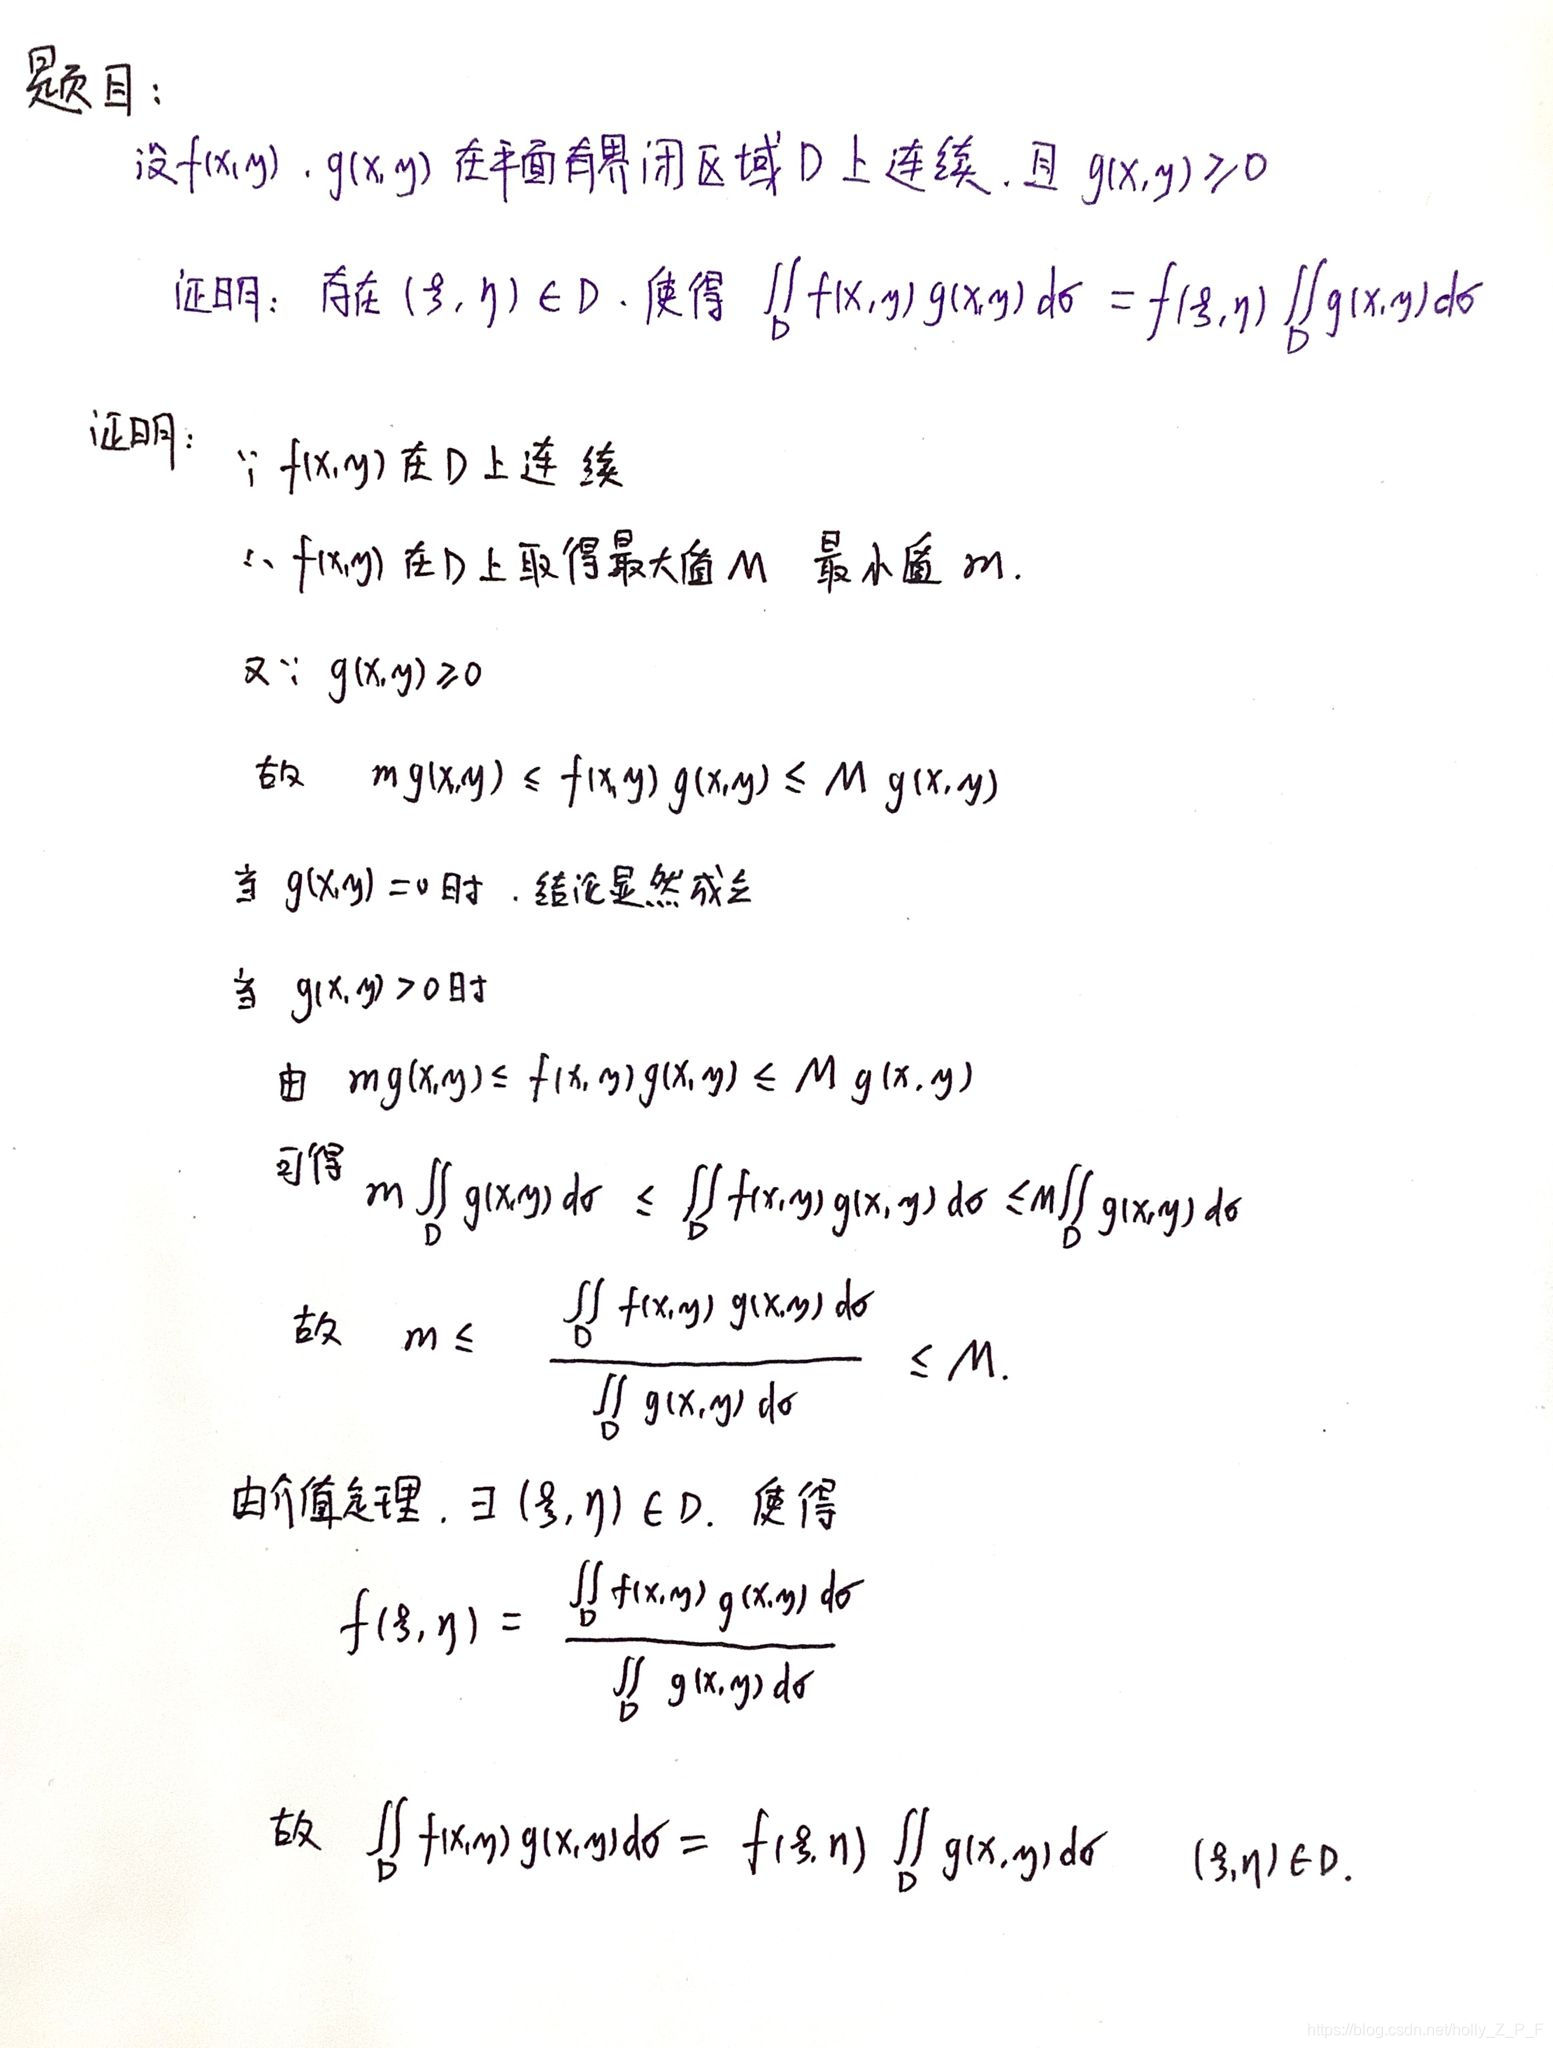 题目:
设f(x,y).g(x,y)在平面有界闭区域D上连续.且 g(x,y)≥0
证明: 存在(ξ,η)∈D.使得 ∬_D f(x,y)g(x,y)dσ = f(ξ,η)∬_D g(x,y)dσ
证明:
∵ f(x,y)在D上连续
∴ f(x,y)在D上取得最大值M 最小值m.
又∵ g(x,y)≥0
故 mg(x,y) ≤ f(x,y)g(x,y) ≤ M g(x,y)
当 g(x,y)=0时.结论显然成立
当 g(x,y)>0时
由 mg(x,y) ≤ f(x,y)g(x,y) ≤ M g(x,y)
可得 m∬_D g(x,y)dσ ≤ ∬_D f(x,y)g(x,y)dσ ≤ M∬_D g(x,y)dσ
故 m ≤ ∬_D f(x,y)g(x,y)dσ / ∬_D g(x,y)dσ ≤ M.
由介值定理.∃(ξ,η)∈D.使得
f(ξ,η) = ∬_D f(x,y)g(x,y)dσ / ∬_D g(x,y)dσ
故 ∬_D f(x,y)g(x,y)dσ = f(ξ,η)∬_D g(x,y)dσ (ξ,η)∈D.
https://blog.csdn.net/holly_Z_P_F